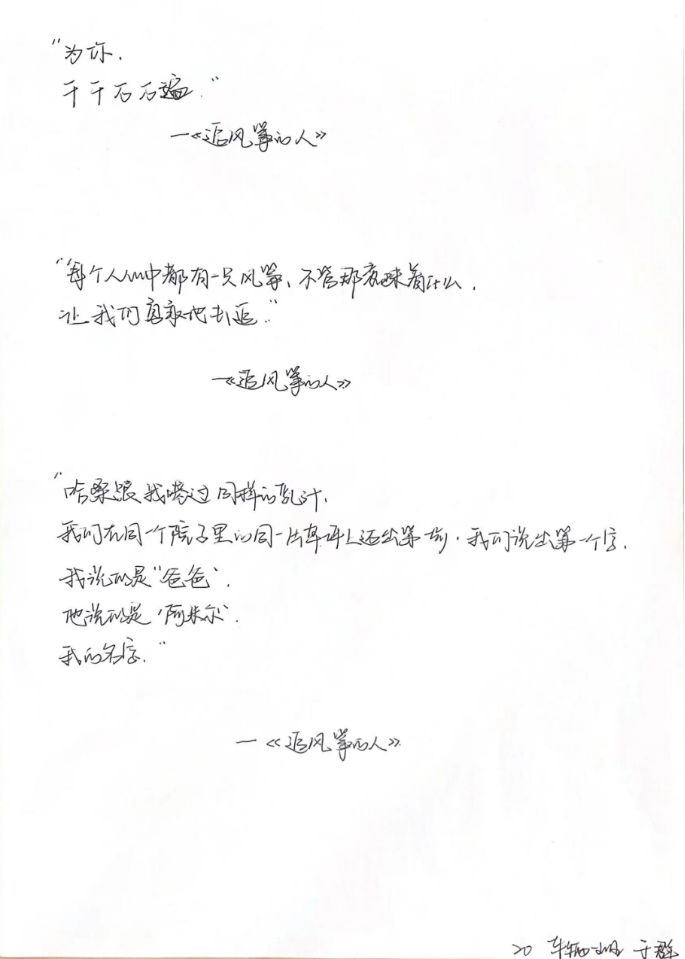 “为你,
千千万万遍.”
—《追风筝的人》
“每个人心中都有一只风筝、不管那意味着什么,
让我们勇敢地去追.”
—《追风筝的人》
“哈桑跟我喝过同样的乳汁,
我们在同一个院子里的同一片草坪上迈出第一步.我们说出第一个字.
我说的是“爸爸”.
他说的是‘阿米尔’.
我的名字.”
—《追风筝的人》
20 车辆 于群